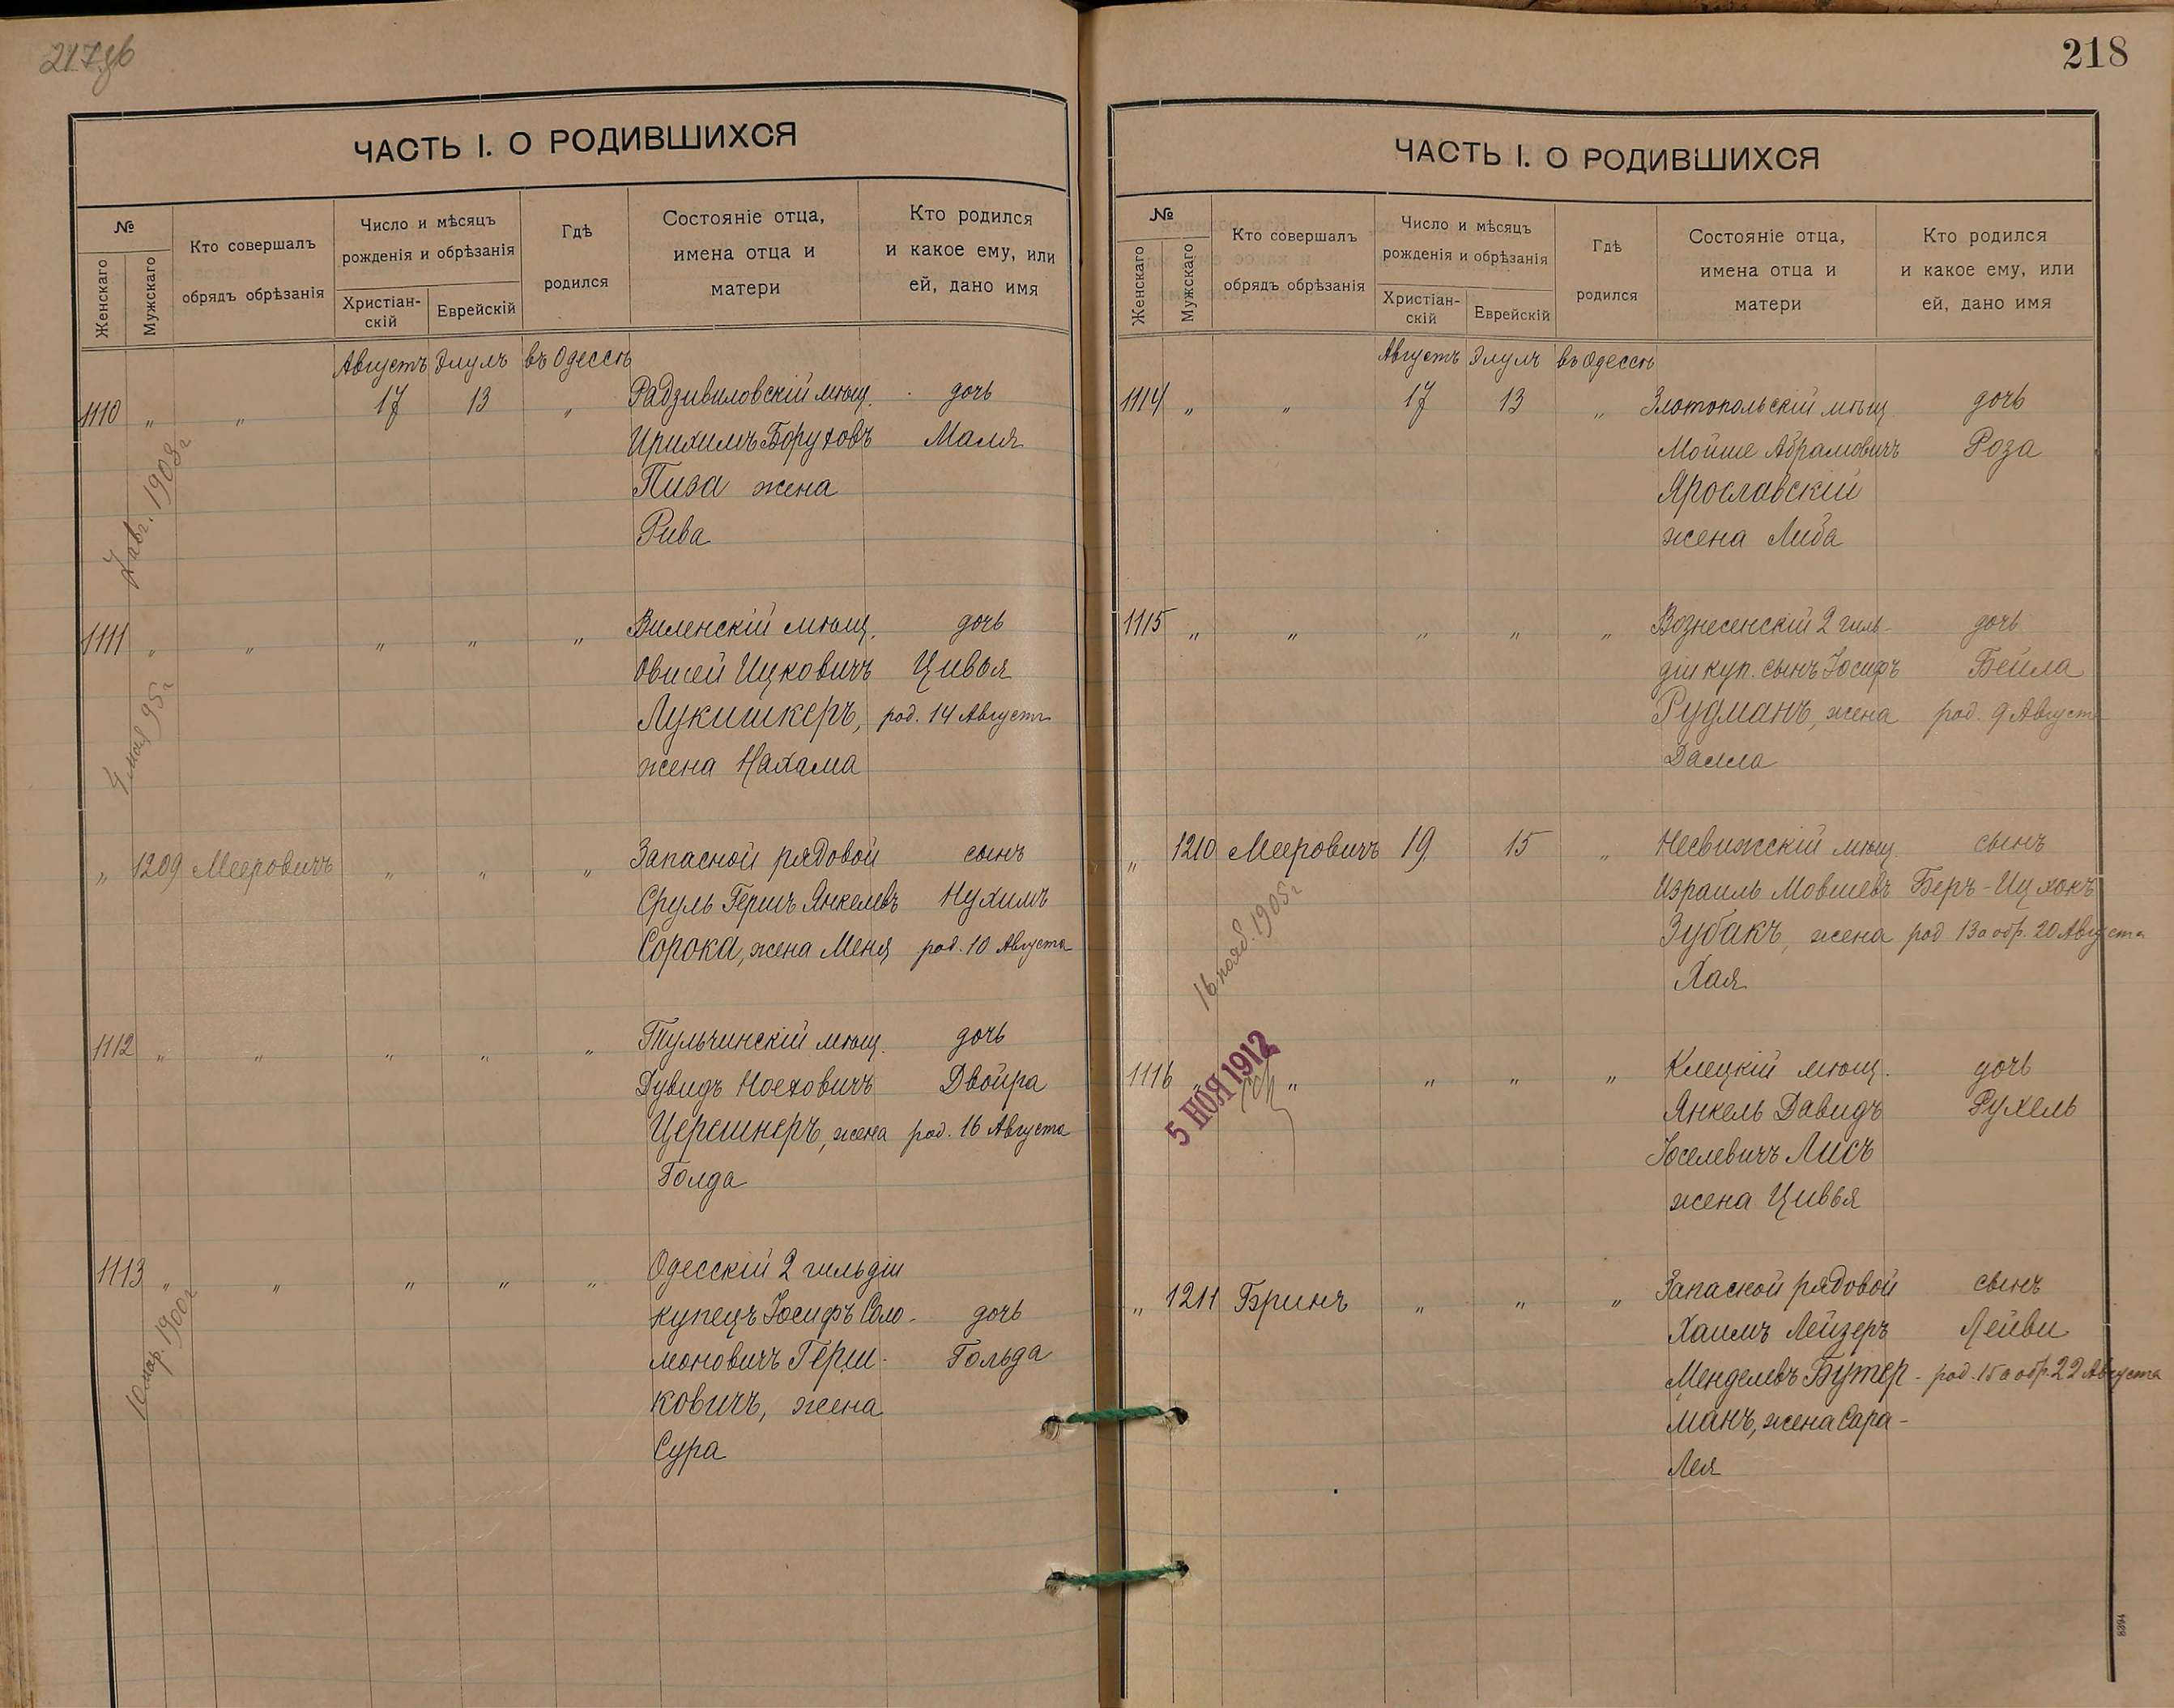 217об
ЧАСТЬ I. О РОДИВШИХСЯ
№
Женскаго
Мужскаго
Кто совершалъ
обрядъ обрѣзанія
Число и мѣсяцъ
рожденія и обрѣзанія
Христіан-
скій
Еврейскій
Гдѣ
родился
Состояніе отца,
имена отца и
матери
Кто родился
и какое ему, или
ей, дано имя
Августъ Элулъ въ Одессѣ
1110 " " 17 13 " Радзивиловскій мѣщ. дочь
Борухова Маля
Пиза жена
Рива
7 авг. 1903 г
1111 " " " " " Виленскій мѣщ. дочь
Овшей Ицковичъ Цивья
Лукишкеръ, род. 14 Августа
жена Нахама
4 мая 95 г
" 1209 Мееровичъ " " " Запасной рядовой сынъ
Сруль Гершъ Янкелевъ Нухимъ
Сорока, жена Меня род. 10 Августа
1112 " " " " " Тульчинскій мѣщ. дочь
Дувидъ Ноеховичъ Двойра
Церешнеръ, жена род. 16 Августа
Голда
1113 " " " " " Одесскій 2 гильдіи
купецъ Іосифъ Соло- дочь
моновичъ Герш- Гольда
ковичъ, жена
Сура
10 мар. 1900 г
218
ЧАСТЬ I. О РОДИВШИХСЯ
№
Женскаго
Мужскаго
Кто совершалъ
обрядъ обрѣзанія
Число и мѣсяцъ
рожденія и обрѣзанія
Христіан-
скій
Еврейскій
Гдѣ
родился
Состояніе отца,
имена отца и
матери
Кто родился
и какое ему, или
ей, дано имя
Августъ Элулъ въ Одессѣ
1114 " " 17 13 " Златопольскій мѣщ. дочь
Мойше Абрамовичъ Роза
Ярославскій
жена Либа
1115 " " " " " Вознесенскій 2 гиль- дочь
діи куп. сынъ Іосифъ Бейла
Рудманъ, жена род. 9 Августа
" 1210 Мееровичъ 19 15 " Несвижскій мѣщ. сынъ
Израиль Мовшевъ Беръ-Ицхокъ
Зубакъ, жена род 13 а обр. 20 Августа
Хая
16 нояб. 1905 г
1116 " " " " " Клецкій мѣщ. дочь
Янкель Давидъ Рухель
Іоселевичъ Лисъ
жена Цивья
5 НОЯ 1912
" 1211 Бринъ " " " Запасной рядовой сынъ
Хаимъ Лейзеръ Лейви
Менделевъ Бутер- род. 15 а обр. 22 Августа
манъ, жена Сара-
Лея
8394